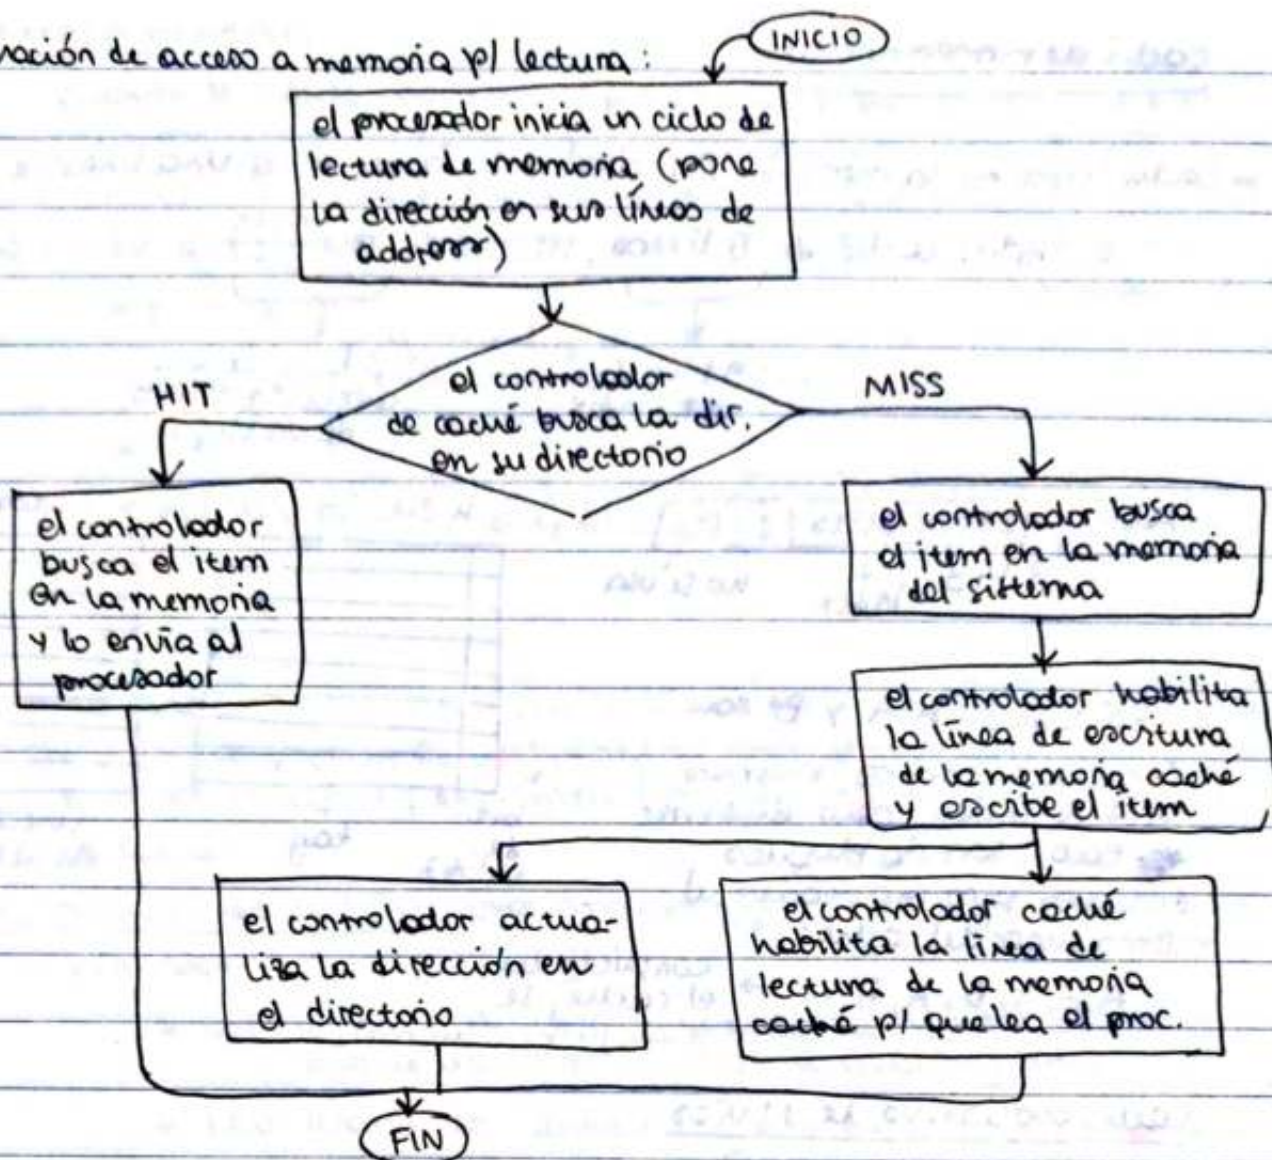 INICIO
ración de acceso a memoria p/ lectura:
el procesador inicia un ciclo de
lectura de memoria (pone
la dirección en sus líneas de
address)
el controlador
de caché busca la dir.
en su directorio
HIT
MISS
el controlador
busca el item
en la memoria
y lo envía al
procesador
el controlador busca
el item en la memoria
del sistema
el controlador habilita
la línea de escritura
de la memoria caché
y escribe el item
el controlador actua-
liza la dirección en
el directorio
el controlador caché
habilita la línea de
lectura de la memoria
caché p/ que lea el proc.
FIN